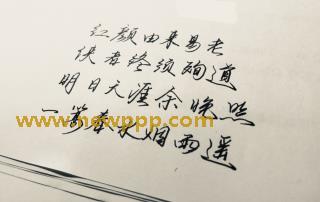 红颜由来易老
侠者终须殉道
明日天涯余晚照
一蓑春水烟雨遥
www.newppp.com